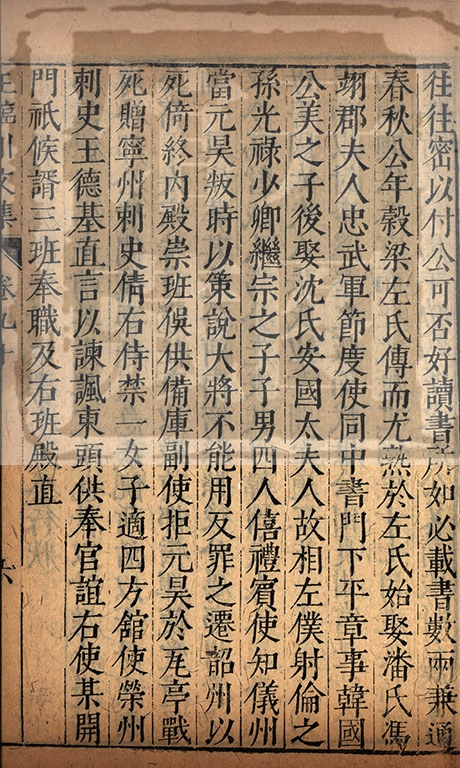 往往密以付公可否好讀書所如必載書數兩兼通
春秋公年穀梁左氏傳而尤熟於左氏始娶潘氏馮
翊郡夫人忠武軍節度使同中書門下平章事韓國
公美之子後娶沈氏安國太夫人故相左僕射倫之
孫光祿少卿繼宗之子子男四人僖禮賓使知儀州
當元昊叛時以策說大將不能用反罪之遷韶州以
死倚終內殿崇班俁供備庫副使拒元昊於瓦亭戰
死贈寧州刺史倩右侍禁一女子適四方舘使榮州
刺史王德基直言以諫諷東頭供奉官誼右使某開
門祇候諝三班奉職及右班殿直
王臨川文集 卷九十 六